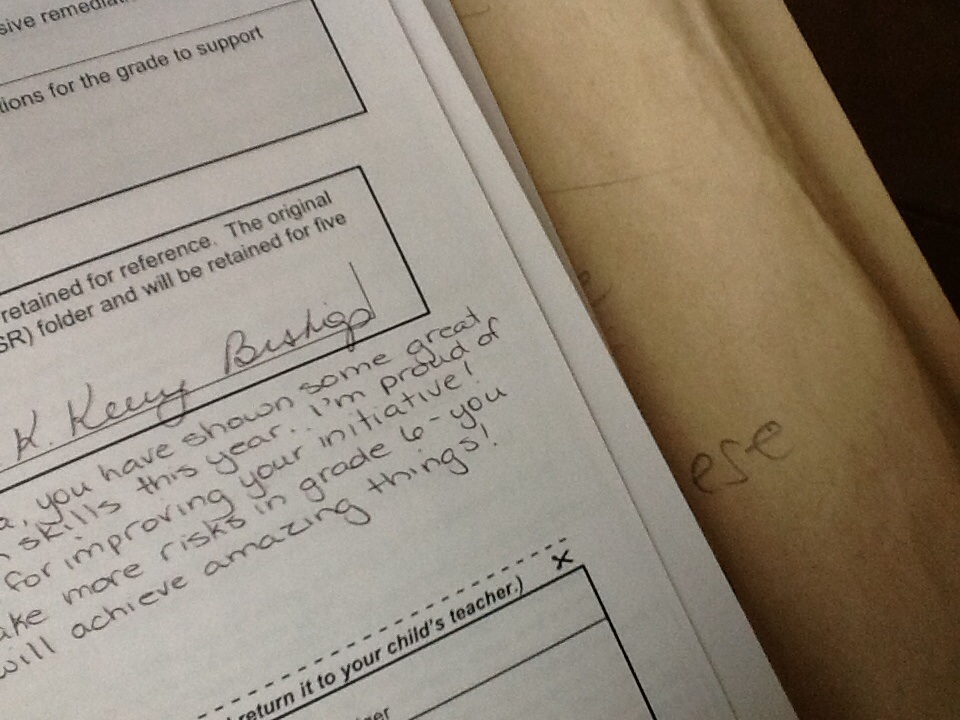 sive remedia
tions for the grade to support
retained for reference. The original
SR) folder and will be retained for five
K. Kerry Bishop
a, you have shown some great
n skills this year. I'm proud of
for improving your initiative!
ake more risks in grade 6 - you
will achieve amazing things!
x
return it to your child's teacher.)
ese